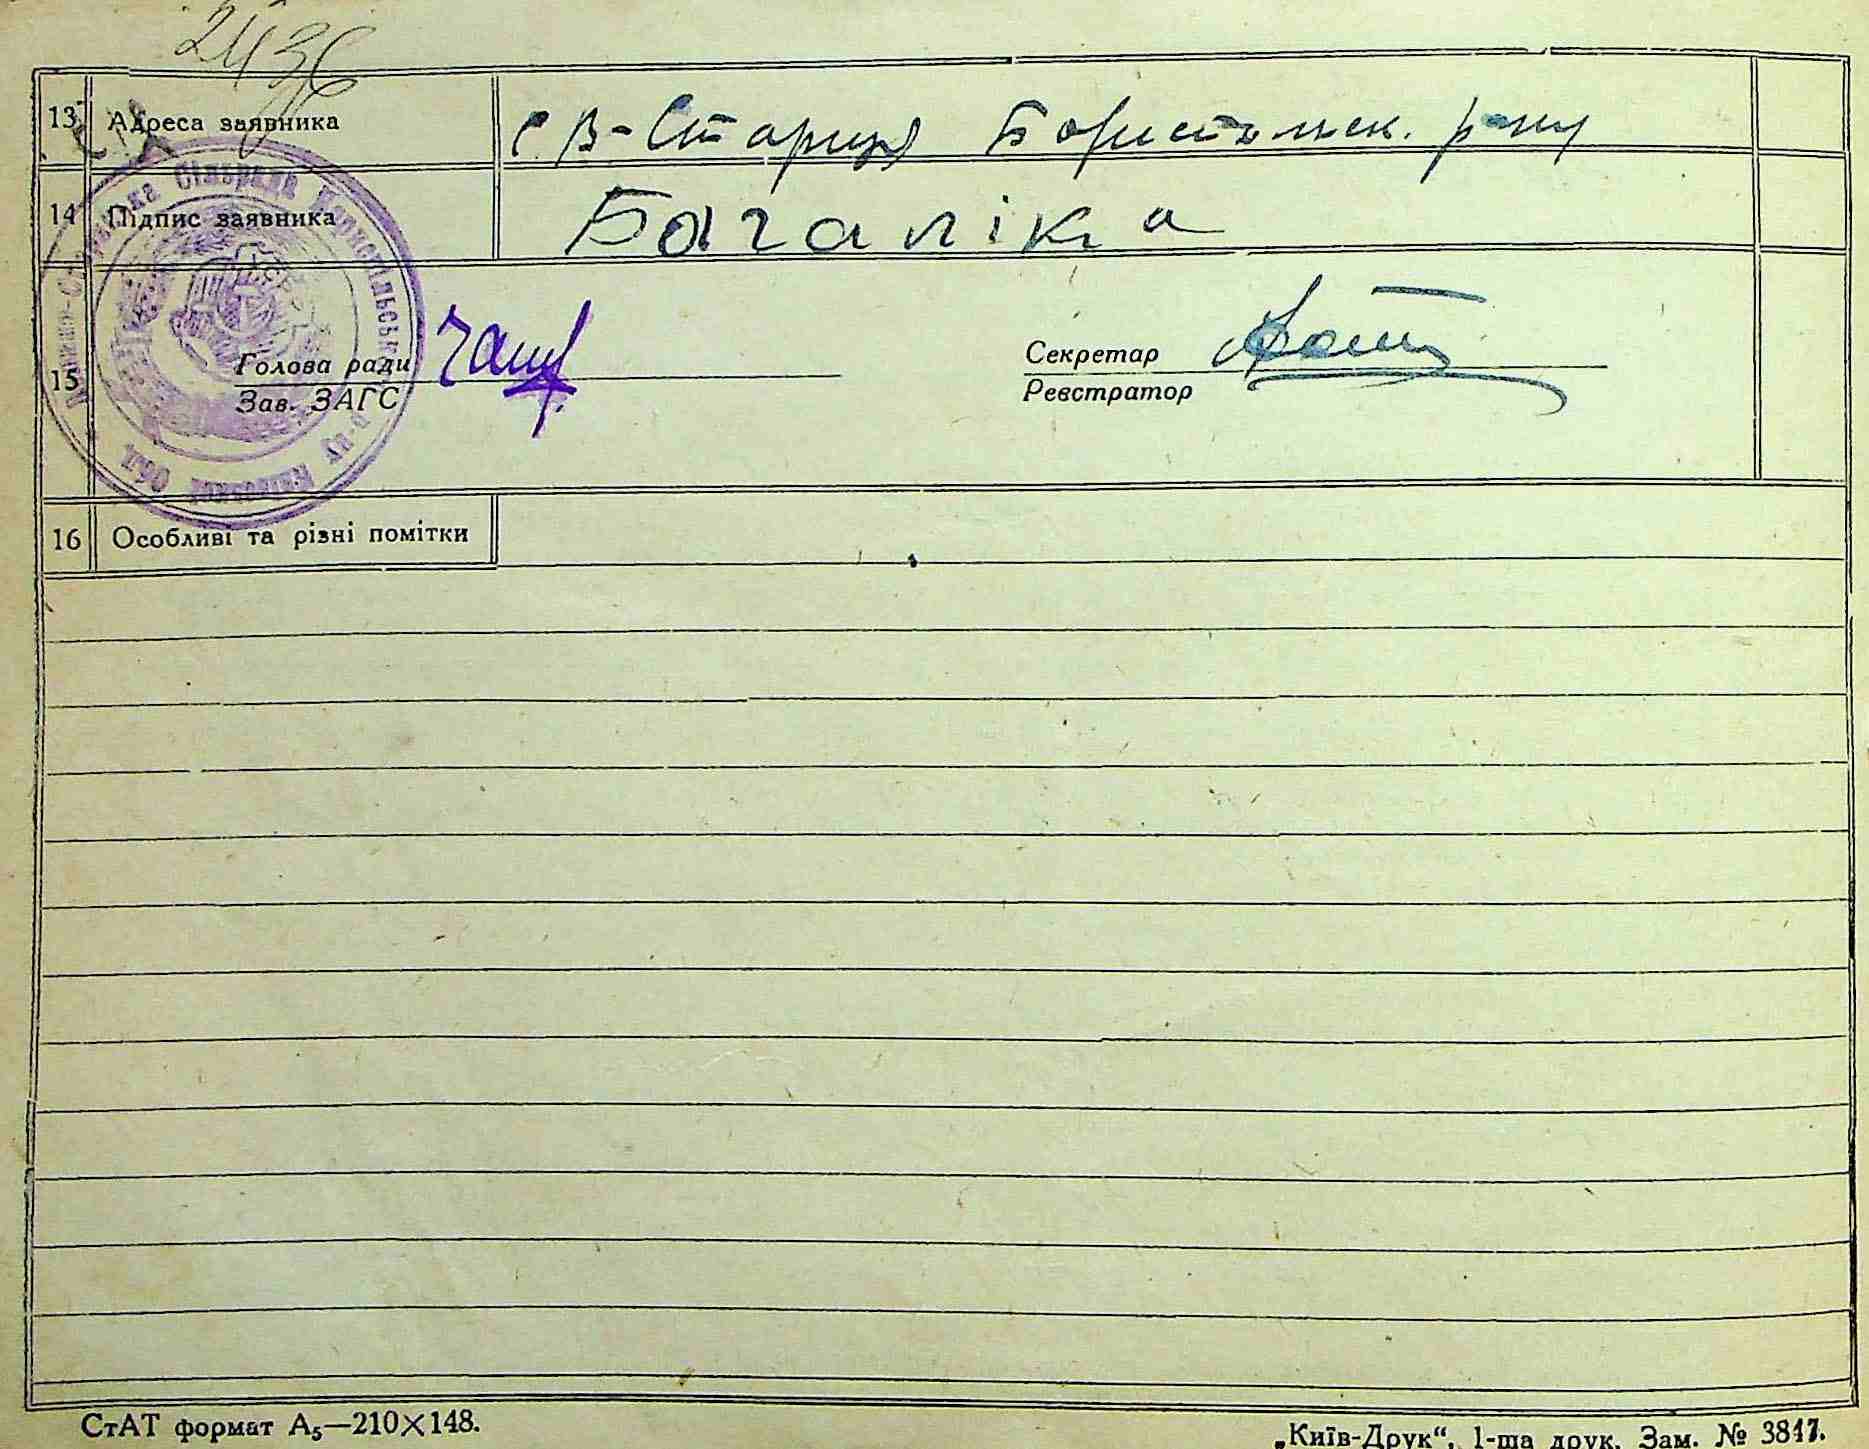 2436
13 Адреса заявника с В-Стариця Бориспільск. р-ну
14 Підпис заявника Багаліка
15 Голова ради Секретар
Зав. ЗАГС Реєстратор
Старицька Сільрада р-ну Київської Обл.
16 Особливі та різні помітки
СтАТ формат А₅—210×148. „Київ-Друк“, 1-ша друк. Зам. № 3817.